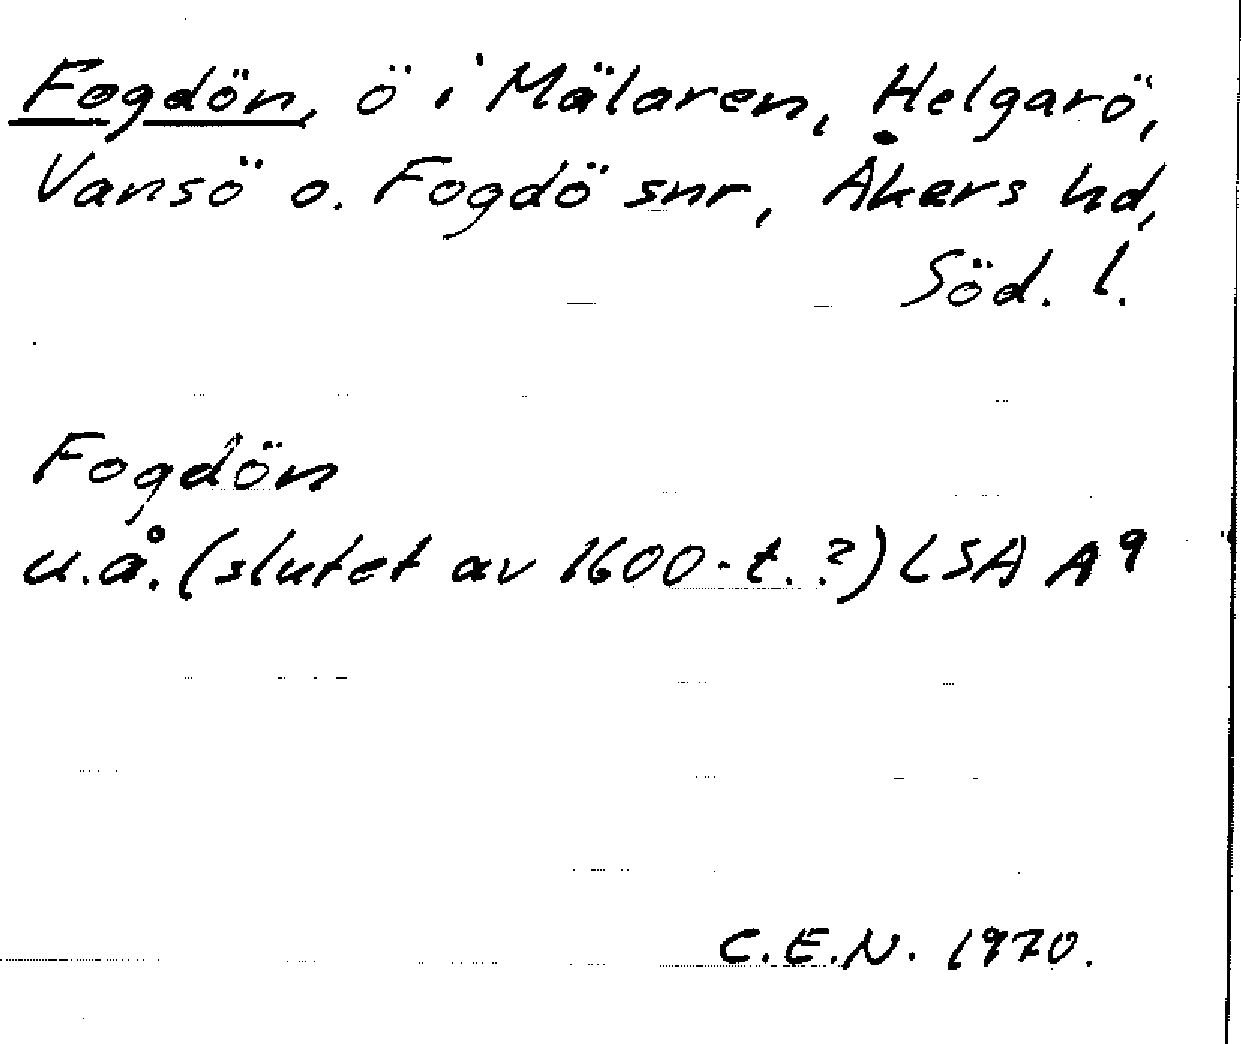 Fogdön, ö i Mälaren, Helgarö,
Vansö o. Fogdö snr, Åkers hd,
Söd. l.
Fogdön
u.å. (slutet av 1600-t. ?) LSA A9
C.E.N. 1970.